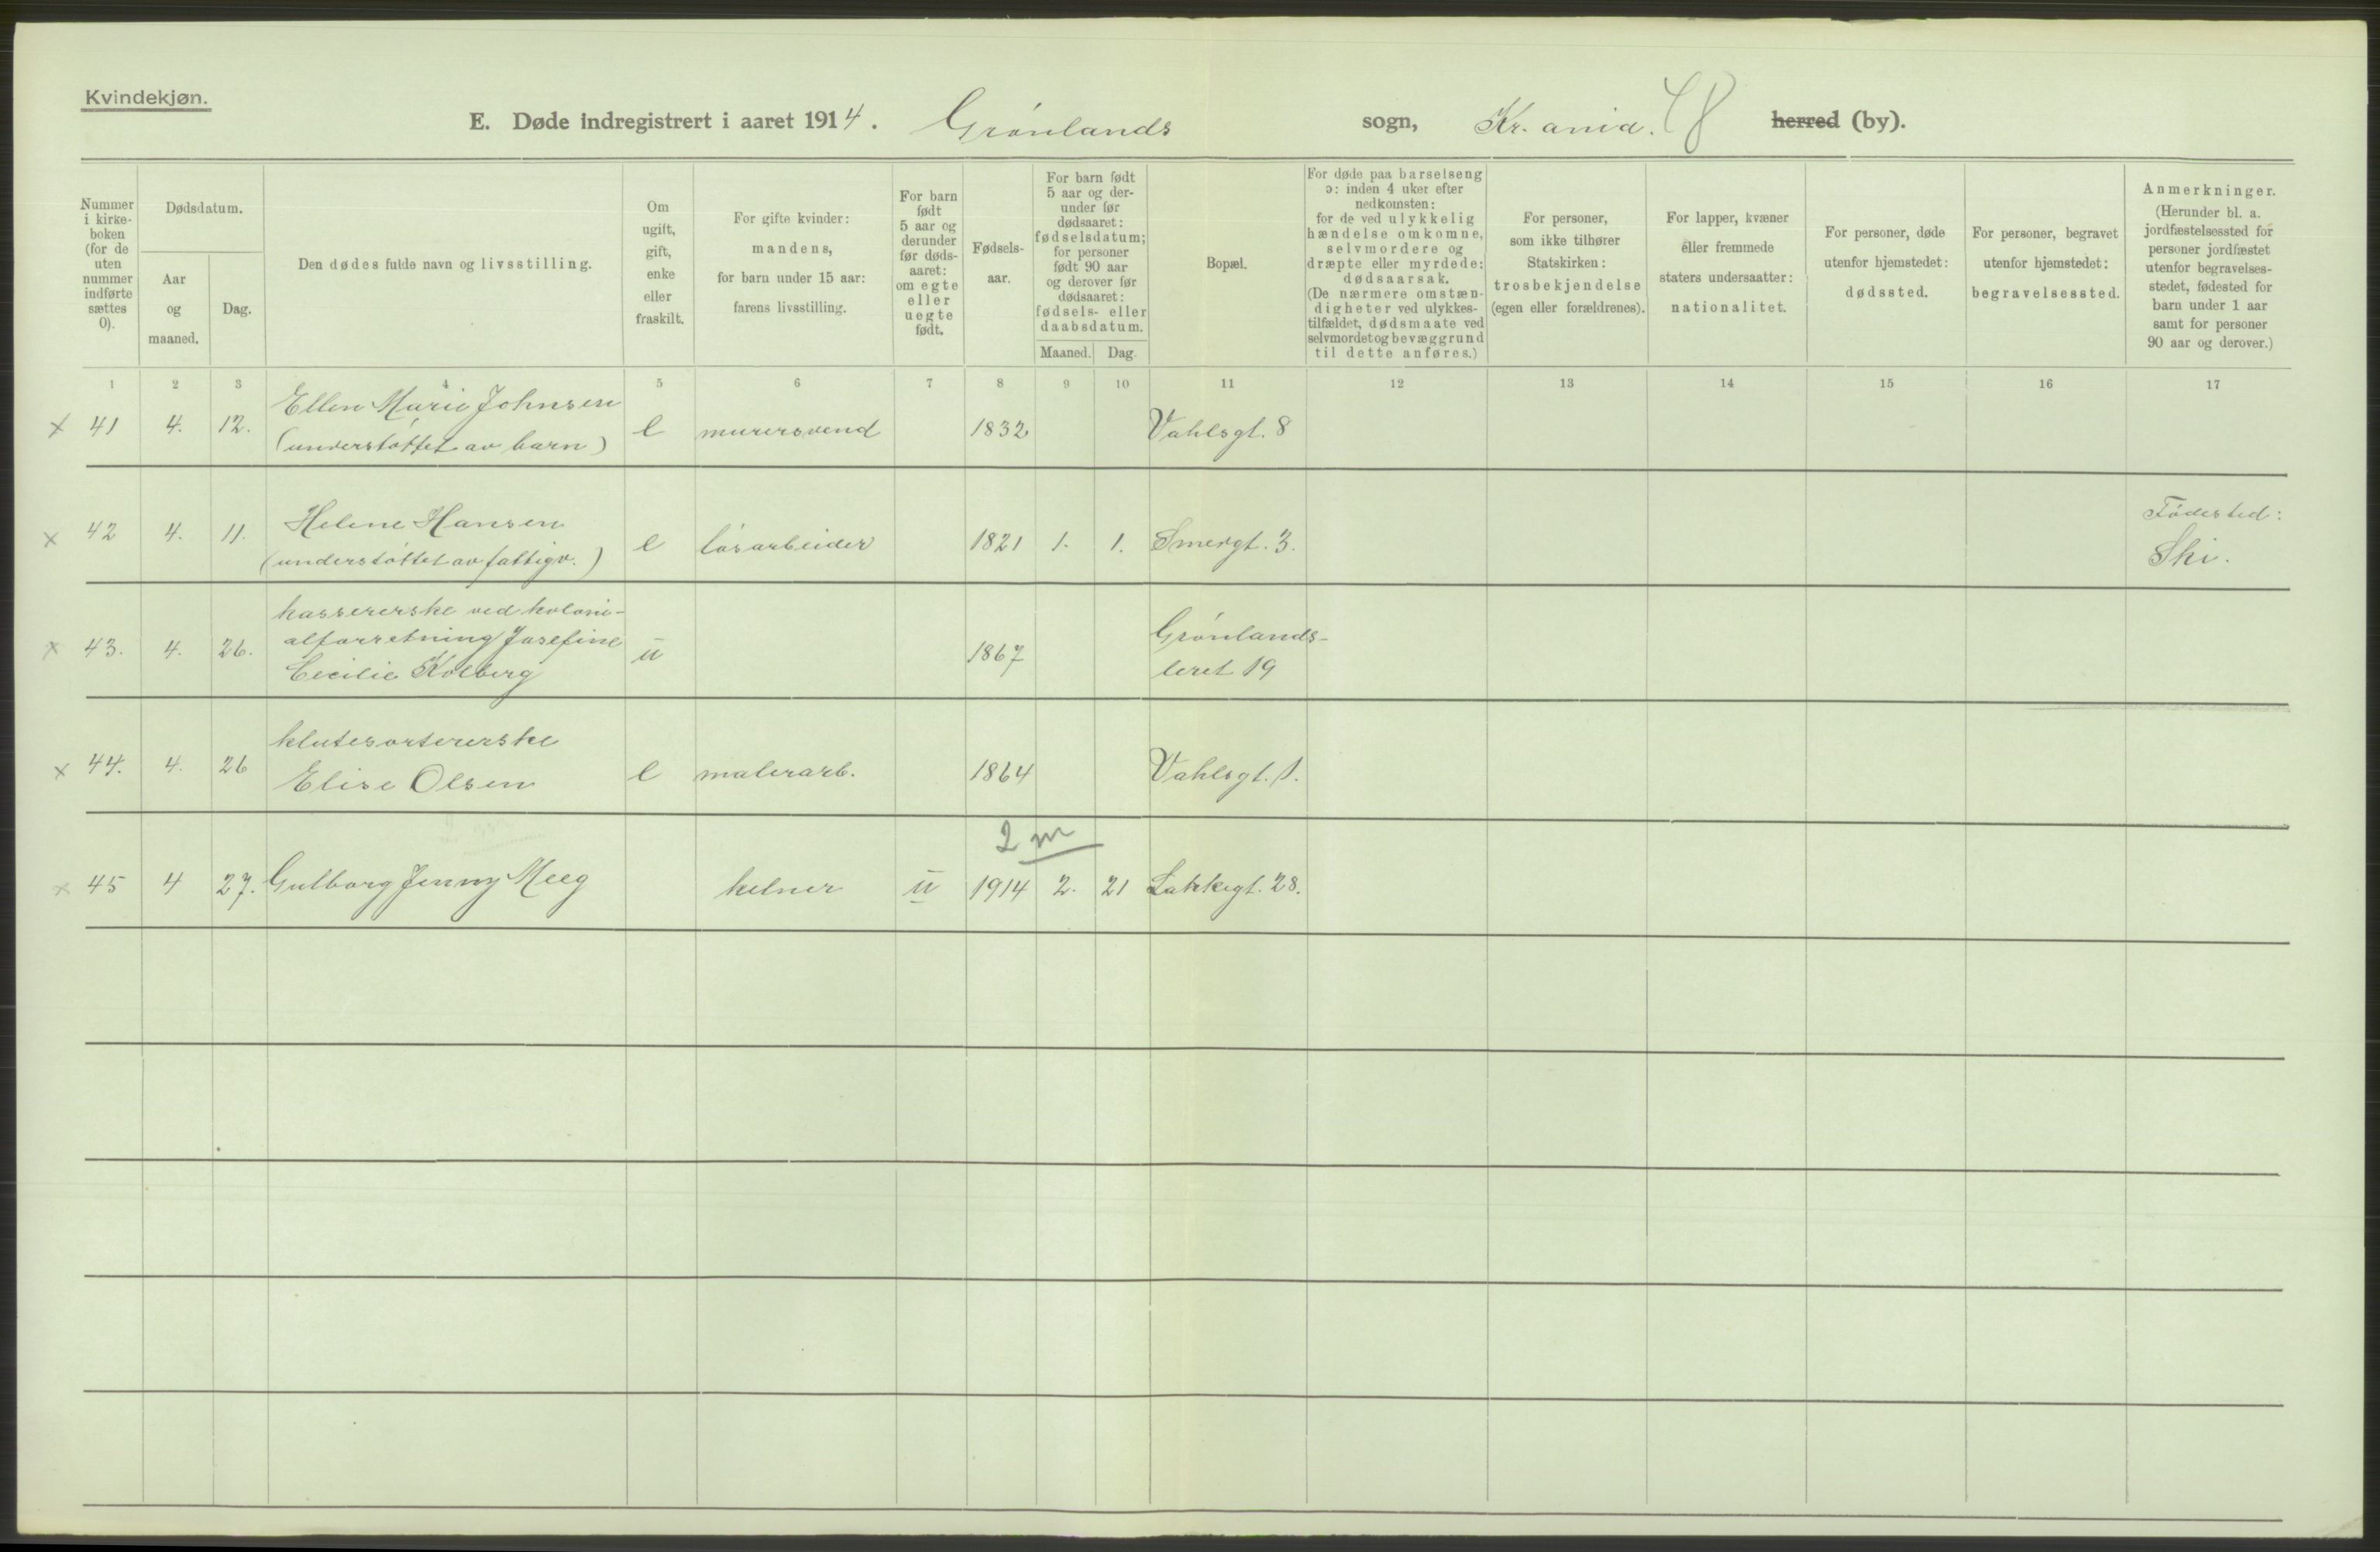 Kvindekjøn.
E. Døde indregistrert i aaret 1914. Grønlands sogn, Kr.ania. 48 herred (by).
Nummer i kirke-
boken
(for de
uten
nummer
indførte
sættes
0).
Dødsdatum.
Aar
og
maaned.
Dag.
Den dødes fulde navn og livsstilling.
Om
ugift,
gift,
enke
eller
fraskilt.
For gifte kvinder:
mandens,
for barn under 15 aar:
farens livsstilling.
For barn
født
5 aar og
derunder
før døds-
aaret:
om egte
eller
uegte
født.
Fødsels-
aar.
For barn født
5 aar og der-
under før
dødsaaret:
fødselsdatum;
for personer
født 90 aar
og derover før
dødsaaret:
fødsels- eller
daabsdatum.
Maaned.
Dag.
Bopæl.
For døde paa barselseng
ɔ: inden 4 uker efter
nedkomsten:
for de ved ulykkelig
hændelse omkomne,
selvmordere og
dræpte eller myrdede:
dødsaarsak.
(De nærmere omstæn-
digheter ved ulykkes-
tilfældet, dødsmaate ved
selvmordet og bevæggrund
til dette anføres.)
For personer,
som ikke tilhører
Statskirken:
trosbekjendelse
(egen eller forældrenes).
For lapper, kvæner
eller fremmede
staters undersaatter:
nationalitet.
For personer, døde
utenfor hjemstedet:
dødssted.
For personer, begravet
utenfor hjemstedet:
begravelsessted.
Anmerkninger.
(Herunder bl. a.
jordfæstelsessted for
personer jordfæstet
utenfor begravelses-
stedet, fødested for
barn under 1 aar
samt for personer
90 aar og derover.)
1 2 3 4 5 6 7 8 9 10 11 12 13 14 15 16 17
Ellen Marie Johnsen
x 41 4. 12. (understøttet av barn) e murersvend 1832 Vahlsgt. 8
Helene Hansen Fødested:
x 42 4. 11. (understøttet av fattigv.) e løsarbeider 1821 1. 1. Smedgt. 3. Ski.
kassererske ved koloni-
x 43. 4. 26. alforretning Josefine u 1867 Grønlands-
Cecilie Kolberg leret 19
klutesortererske
x 44. 4. 26 Elise Olsen e malerarb. 1864 Vahlsgt. 1.
2 m
x 45 4 27. Gulborg Jenny Meeg kelner u 1914 2. 21 Lakkegt. 28.